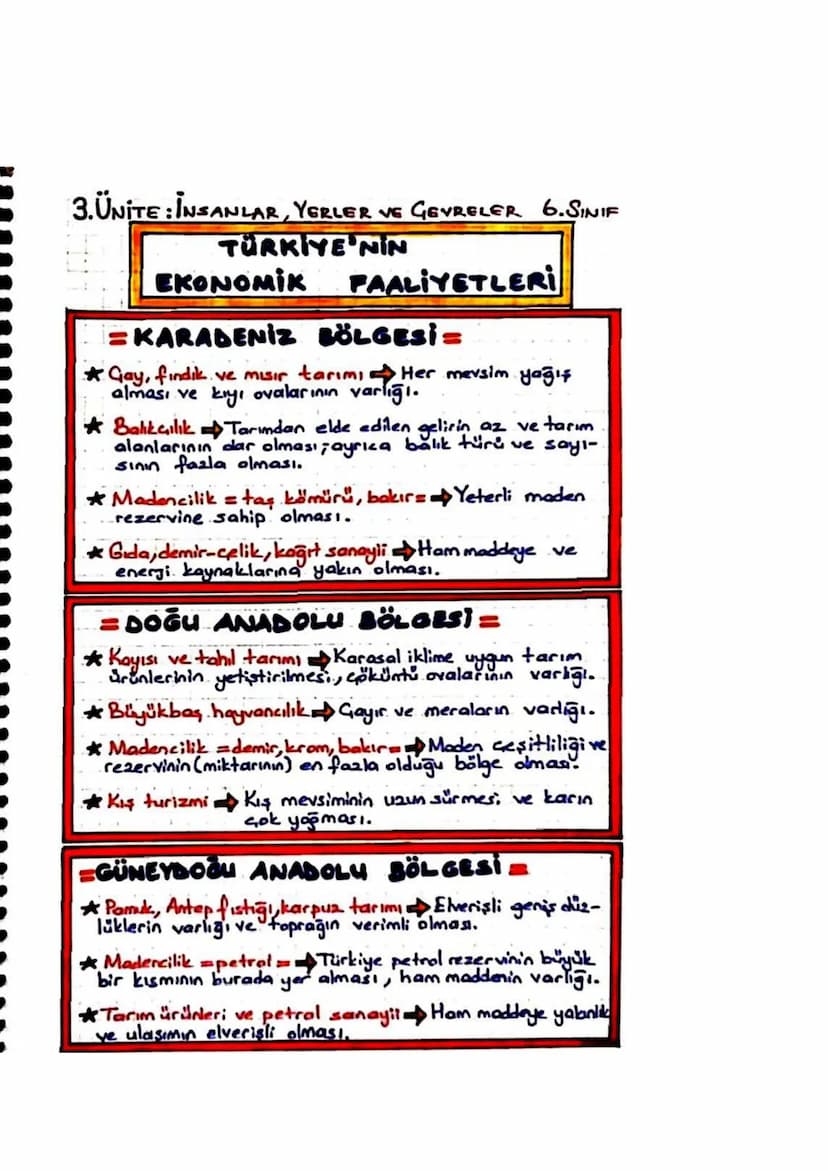 3.ÜNİTE: İNSANLAR, YERLER VE ÇEVRELER 6.SINIF
TÜRKİYE'NİN
EKONOMİK FAALİYETLERİ
= KARADENİZ BÖLGESİ =
★ Çay, fındık ve mısır tarımı ➡ Her mevsim yağış
alması ve kıyı ovalarının varlığı.
★ Balıkçılık ➡ Tarımdan elde edilen gelirin az ve tarım
alanlarının dar olması; ayrıca balık türü ve sayı-
sının fazla olması.
★ Madencilik = taş kömürü, bakır = ➡ Yeterli maden
rezervine sahip olması.
★ Gıda, demir-çelik, kağıt sanayii ➡ Ham maddeye ve
energi kaynaklarına yakın olması.
= DOĞU ANADOLU BÖLGESİ =
★ Kayısı ve tahıl tarımı ➡ Karasal iklime uygun tarım
ürünlerinin yetiştirilmesi, çöküntü ovalarının varlığı.
★ Büyükbaş hayvancılık ➡ Çayır ve meraların varlığı.
★ Madencilik = demir, krom, bakır = ➡ Maden çeşitliliği ve
rezervinin (miktarının) en fazla olduğu bölge olması.
★ Kış turizmi ➡ Kış mevsiminin uzun sürmesi ve karın
çok yağması.
= GÜNEYDOĞU ANADOLU BÖLGESİ =
★ Pamuk, Antep fıstığı, karpuz tarımı ➡ Elverişli geniş düz-
lüklerin varlığı ve toprağın verimli olması.
★ Madencilik = petrol = ➡ Türkiye petrol rezervinin büyük
bir kısmının burada yer alması, ham maddenin varlığı.
★ Tarım ürünleri ve petrol sanayii ➡ Ham maddeye yakınlık
ve ulaşımın elverişli olması.